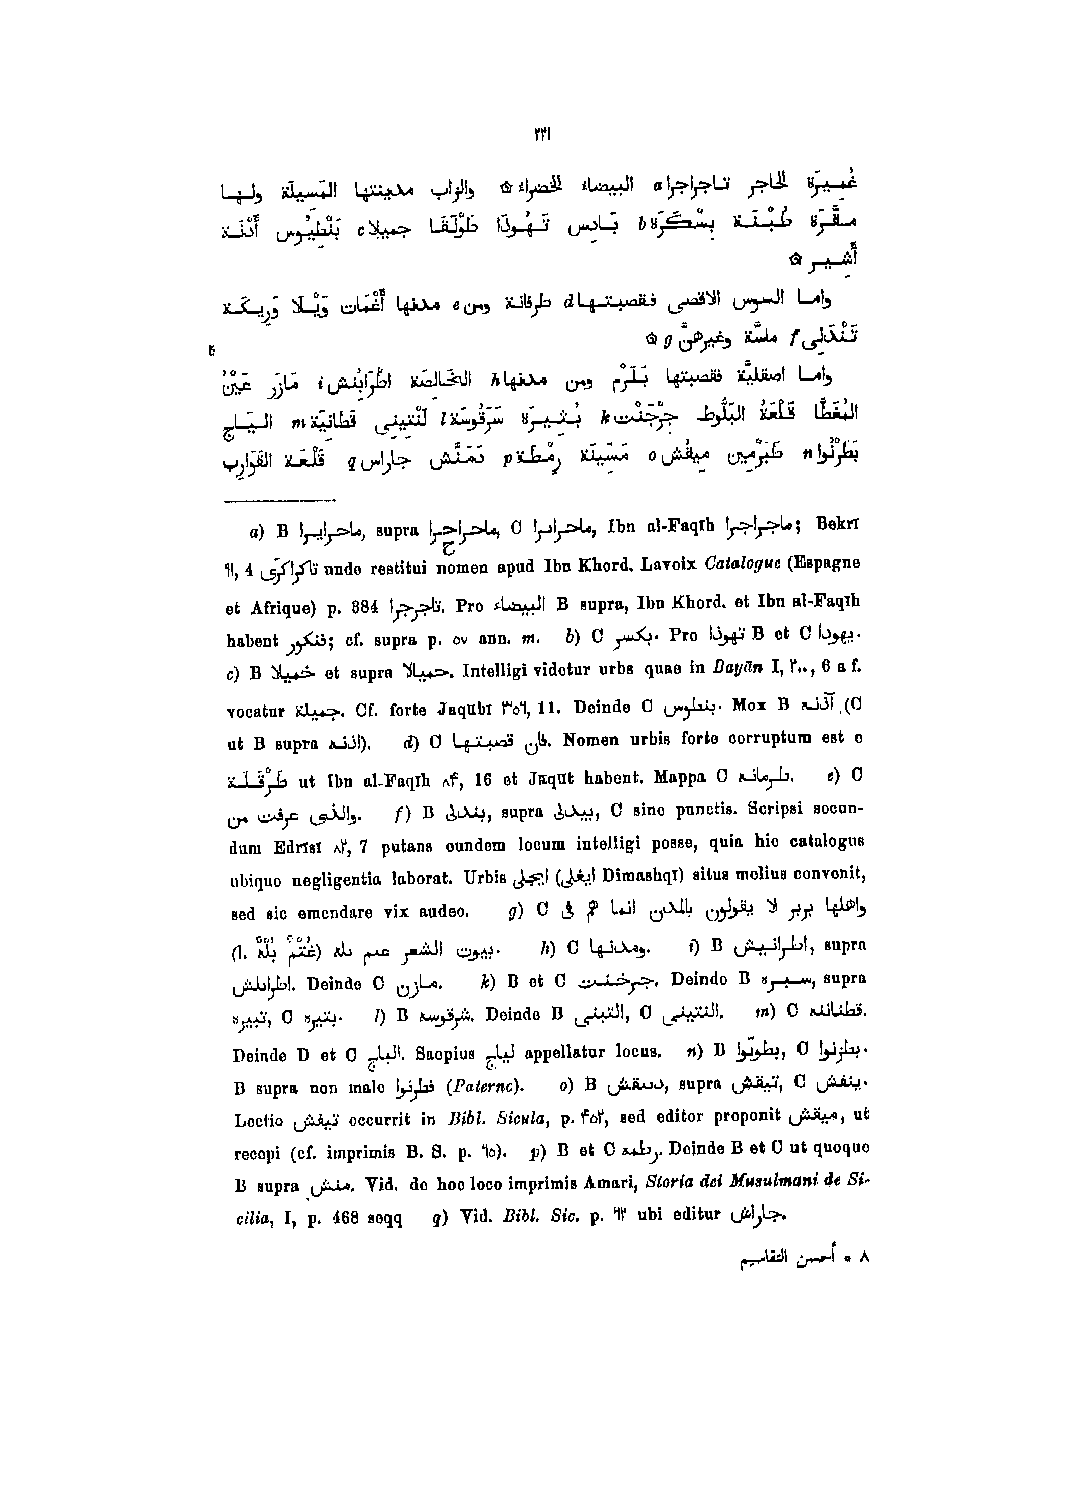 ٢٢١
غُميرَة الحاجر تاجراجرا a البيضاء الخضراء ۞ والزاب مدينتها المَسيلة ولها
مقَّرَة طُبْنَة بِسْكَرَة b بَادِس تَهُوذَا طَوْلَقَا جميلا c بَنْطيُوس أَدْنَة
أَشير ۞
واما السوس الاقصى فقصبتها d طرفانة ومن e مدنها أَغْمَات وَيْلا وَرِيكَة
تَنْدَلى f ماسَّة وغيرهنَّ g ۞
واما اصقليَّة فقصبتها بَلَرْم ومن مدنها h الخَالصَة اطْرَابِنْش i مَازَر عَيْنُ
المُغَطَّا قَلْعَةُ البَلُّوط جِرْجَنْت k بُثيرَة سَرَقُوسَة l لَنْتِينى قَطَانِيَة m اليَاج
بَطَرْنُوا n طَبَرْمين ميقُش o مَسّينَة رِمْطَة p دَمَنَّش جاراس q قَلْعَة القَوَارِب
a) B ماحرايرا, supra ماحراجرا, C ماحرابرا, Ibn al-Faqīh ماجراجرا; Bekrī
٩١, 4 تاكراكرى unde restitui nomen apud Ibn Khord. Lavoix Catalogue (Espagne
et Afrique) p. 384 تاجرجرا. Pro البيضاء B supra, Ibn Khord. et Ibn al-Faqīh
habent فنكور; cf. supra p. ٥٧ ann. m. b) C بكسر. Pro تهوذا B et C يهودا.
c) B خميلا et supra حميلا. Intelligi videtur urbs quae in Bayān I, ٣٠٠, 6 a f.
vocatur جميلة. Cf. forte Jaqubī ٣٥٩, 11. Deinde C بنطوس. Mox B آدنه (C
ut B supra اذنه). d) C فان قصبتها. Nomen urbis forte corruptum est e
طَرْقَلَة ut Ibn al-Faqīh ٨٤, 16 et Jaqut habent. Mappa C طرمانه. e) C
والذى عرفت من. f) B بندلى, supra بيدلى, C sine punctis. Scripsi secun-
dum Edrīsī ٨٢, 7 putans eundem locum intelligi posse, quia hic catalogus
ubique negligentia laborat. Urbis ايجلى (ايغلى Dimashqī) situs melius convenit,
sed sic emendare vix audeo. g) C واهلها بربر لا يقولون بالمدن انما هم فى
بيوت الشعر عنم بله (l. غَنَمٌ بُلْهٌ). h) C ومدنها. i) B اطرانيش, supra
اطرابلش. Deinde C مازن. k) B et C جرخنت. Deinde B سبره, supra
تبيره, C بتيره. l) B شرقوسه. Deinde B التبنى, C النتينى. m) C قطنانه.
Deinde B et C الباج. Saepius لياج appellatur locus. n) B بطونوا, C بطرنوا.
B supra non male فطرنوا (Paterne). o) B دسقش, supra تيقش, C ينقش.
Lectio تيقش occurrit in Bibl. Sicula, p. ٤٥٢, sed editor proponit ميقش, ut
recepi (cf. imprimis B. S. p. ٦٥). p) B et C رطمه. Deinde B et C ut quoque
B supra منش. Vid. de hoc loco imprimis Amari, Storia dei Musulmani de Si-
cilia, I, p. 468 seqq q) Vid. Bibl. Sic. p. ٦٣ ubi editur جاراش.
٨ * أحسن التقاسيم